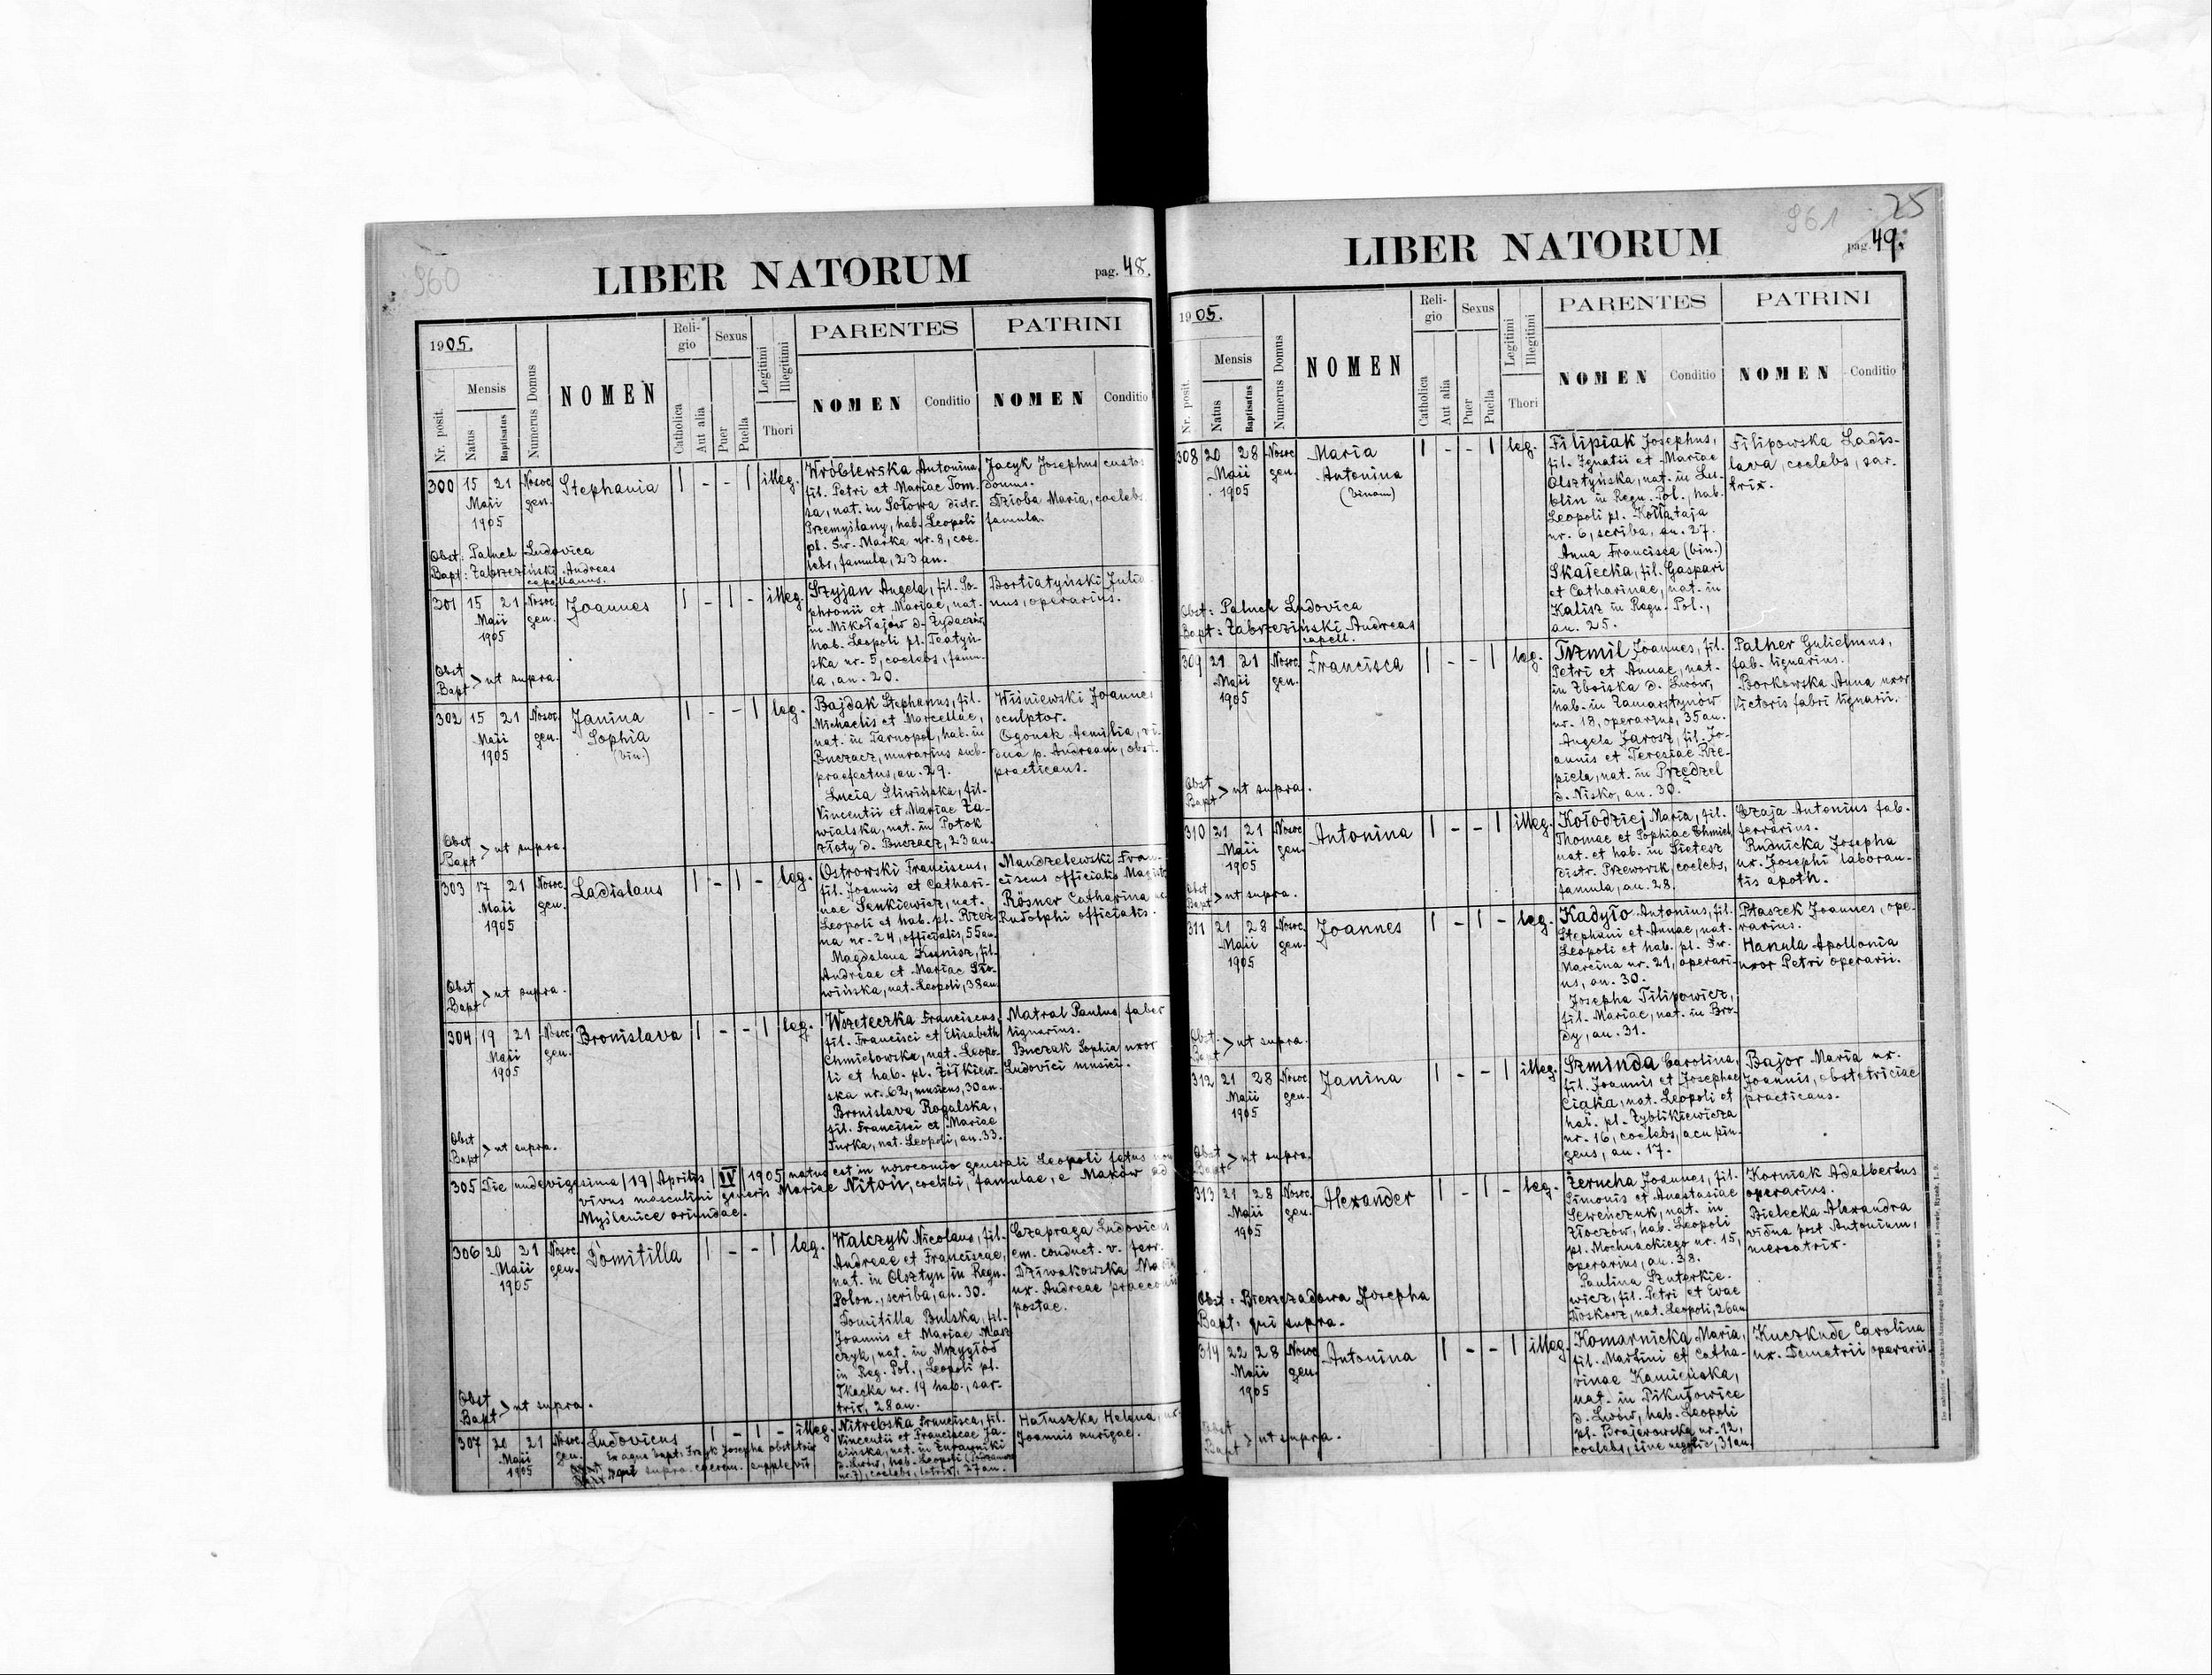 960
LIBER NATORUM
pag. 48.
1905.
Nr. posit.
Mensis
Natus
Baptisatus
Numerus Domus
NOMEN
Reli-
gio
Catholica
Aut alia
Sexus
Puer
Puella
Legitimi
Illegitimi
Thori
PARENTES
NOMEN
Conditio
PATRINI
NOMEN
Conditio
300 15 21 Nosoc. gen.
Maii
1905
Stephania
| - - | illeg.
Wróblewska Antonina,
fil. Petri et Mariae Tom-
sa, nat. in Sołowa distr.
Przemyślany, hab. Leopoli
pl. Św. Marka nr. 8, coe-
lebs, famula, 23 an.
Jacyk Josephus custos
domus.
Dzioba Maria, coelebs
famula.
Obst: Paluch Ludovica
Bapt: Zabrzeziński Andreas
capellanus.
301 15 21 Nosoc. gen.
Maii
1905
Joannes
| - | - illeg.
Szyjan Angela, fil. So-
phronii et Mariae, nat.
in Mikołajów d. Żydaczów
hab. Leopoli pl. Teatyń-
ska nr. 5, coelebs, famu-
la, an. 20.
Bortiatyński Julia-
nus, operarius.
Obst
Bapt > ut supra.
302 15 21 Nosoc. gen.
Maii
1905
Janina
Sophia
(bin.)
| - - | leg.
Bajdak Stephanus, fil.
Michaelis et Marcellae,
nat. in Tarnopol, hab. in
Buczacz, murarius sub-
praefectus, an. 29.
Lucia Śliwińska, fil.
Vincentii et Mariae Za-
wialska, nat. in Potok
złoty d. Buczacz, 23 an.
Wiśniewski Joannes
sculptor.
Ogonek Aemilia, vi-
dua p. Andream, obst.
practicans.
Obst
Bapt > ut supra.
303 17 21 Nosoc. gen.
Maii
1905
Ladislaus
| - | - leg.
Ostrowski Franciscus,
fil. Joannis et Cathari-
nae Senkiewicz, nat.
Leopoli et hab. pl. Rzeź-
na nr. 24, officialis, 55 an.
Magdalena Kunisz, fil.
Andreae et Mariae Sło-
wińska, nat. Leopoli, 38 an
Mandzelewski Fran-
ciscus officialis Magistr
Rösner Catharina
Rudolphi officialis.
Obst
Bapt > ut supra.
304 19 21 Nosoc. gen.
Maii
1905
Bronislava
| - - | leg.
Wszeteczka Franciscus,
fil. Francisci et Elisabeth
Chmielowska, nat. Leopo-
li et hab. pl. Żółkiew-
ska nr. 62, musicus, 30 an.
Bronislava Rogalska,
fil. Francisci et Mariae
Turka, nat. Leopoli, an. 33.
Matral Paulus faber
lignarius.
Buczak Sophia uxor
Ludovici musici.
Obst
Bapt > ut supra.
305 Die undevigesima /19/ Aprilis / IV / 1905 natus est in nosocomio generali Leopoli fetus non
vivus masculini generis Mariae Nitoń, coelibi, famulae, e Maków ad
Myślenice oriundae.
306 20 21 Nosoc. gen.
Maii
1905
Domitilla
| - - | leg.
Walczyk Nicolaus, fil.
Andreae et Franciscae,
nat. in Olsztyn in Regn.
Polon., scriba, an. 30.
Domitilla Bulska, fil.
Joannis et Mariae Masz
czyk, nat. in Mrzygłód
in Reg. Pol., Leopoli pl.
Tkacka nr. 19 hab., sar-
trix, 28 an.
Czapraga Ludovicus
em. conduct. v. ferr.
Dziwakowska Maria
ux. Andreae praeconis
postae.
Obst
Bapt > ut supra.
307 20 21 Nosoc. gen.
Maii
1905
Ludovicus
ex aqua bapt. Frayk Josepha obstetrix
qui supra caerem. supplevit
| - | - illeg.
Nitrebska Francisca, fil.
Vincentii et Franciscae Ja-
sińska, nat. in Żurawniki
d. Lwów, hab. Leopoli
nr. 7), coelebs, lotrix, 27 an.
Hałuszka Helena, ux.
Joannis aurigae.
961
25
LIBER NATORUM
pag. 49.
1905.
Nr. posit.
Mensis
Natus
Baptisatus
Numerus Domus
NOMEN
Reli-
gio
Catholica
Aut alia
Sexus
Puer
Puella
Legitimi
Illegitimi
Thori
PARENTES
NOMEN
Conditio
PATRINI
NOMEN
Conditio
308 20 28 Nosoc. gen.
Maii
1905
Maria
Antonina
(binom)
| - - | leg.
Filipiak Josephus,
fil. Ignatii et Mariae
Olsztyńska, nat. in Lu-
blin in Regn. Pol., hab.
Leopoli pl. Kołłątaja
nr. 6, scriba, an. 27.
Anna Francisca (bin.)
Skałecka, fil. Gaspari
et Catharinae, nat. in
Kalisz in Regn. Pol.,
an. 25.
Filipowska Ladis-
lava, coelebs, sar-
trix.
Obst: Paluch Ludovica
Bapt: Zabrzeziński Andreas
capell.
309 21 21 Nosoc. gen.
Maii
1905
Francisca
| - - | leg.
Trzmil Joannes, fil.
Petri et Annae, nat.
in Zboiska d. Lwów,
hab. in Zamarstynów
nr. 18, operarius, 35 an.
Angela Jarosz, fil. Jo-
annis et Teresiae Rze-
piela, nat. in Przędzel
d. Nisko, an. 30.
Palher Gulielmus,
fab. lignarius.
Borkowska Anna uxor
Victoris fabri lignarii.
Obst
Bapt > ut supra.
310 21 21 Nosoc. gen.
Maii
1905
Antonina
| - - | illeg.
Kołodziej Maria, fil.
Thomae et Sophiae Chmiel,
nat. et hab. in Sietesz
distr. Przeworsk, coelebs,
famula, an. 28.
Czaja Antonius fab.
ferrarius.
Rudnicka Josepha
ux. Josephi laboran-
tis apoth.
Obst
Bapt > ut supra.
311 21 28 Nosoc. gen.
Maii
1905
Joannes
| - | - leg.
Kadyło Antonius, fil.
Stephani et Annae, nat.
Leopoli et hab. pl. Św.
Marcina nr. 21, operari-
us, an. 30.
Josepha Filipowicz,
fil. Mariae, nat. in Bro-
dy, an. 31.
Ptaszek Joannes, ope-
rarius.
Hanula Apollonia
uxor Petri operarii.
Obst
Bapt > ut supra.
312 21 28 Nosoc. gen.
Maii
1905
Janina
| - - | illeg.
Szminda Carolina,
fil. Joannis et Josephae
Ciąka, nat. Leopoli et
hab. pl. Zyblikiewicza
nr. 16, coelebs, acu pin-
gens, an. 17.
Bajor Maria ux.
Joannis, obstetriciae
practicans.
Obst
Bapt > ut supra.
313 21 28 Nosoc. gen.
Maii
1905
Alexander
| - | - leg.
Żerucha Joannes, fil.
Simonis et Anastasiae
Seweńczuk, nat. in
Złoczów, hab. Leopoli
pl. Mochnackiego nr. 15,
operarius, an. 38.
Paulina Sznterkie-
wicz, fil. Petri et Evae
Doskocz, nat. Leopoli, 26 an
Korniak Adalbertus
operarius.
Bielecka Alexandra
vidua post Antonium,
mercatrix.
Obst: Bieszczadowa Josepha
Bapt: qui supra.
314 22 28 Nosoc. gen.
Maii
1905
Antonina
| - - | illeg.
Komarnicka Maria,
fil. Martini et Catha-
rinae Kamieńska,
nat. in Pikułowice
d. Lwów, hab. Leopoli
pl. Brajerowska nr. 12,
coelebs, sine negotio, 31 an.
Kuczkude Carolina
ux. Demetrii operarii.
Obst
Bapt > ut supra.